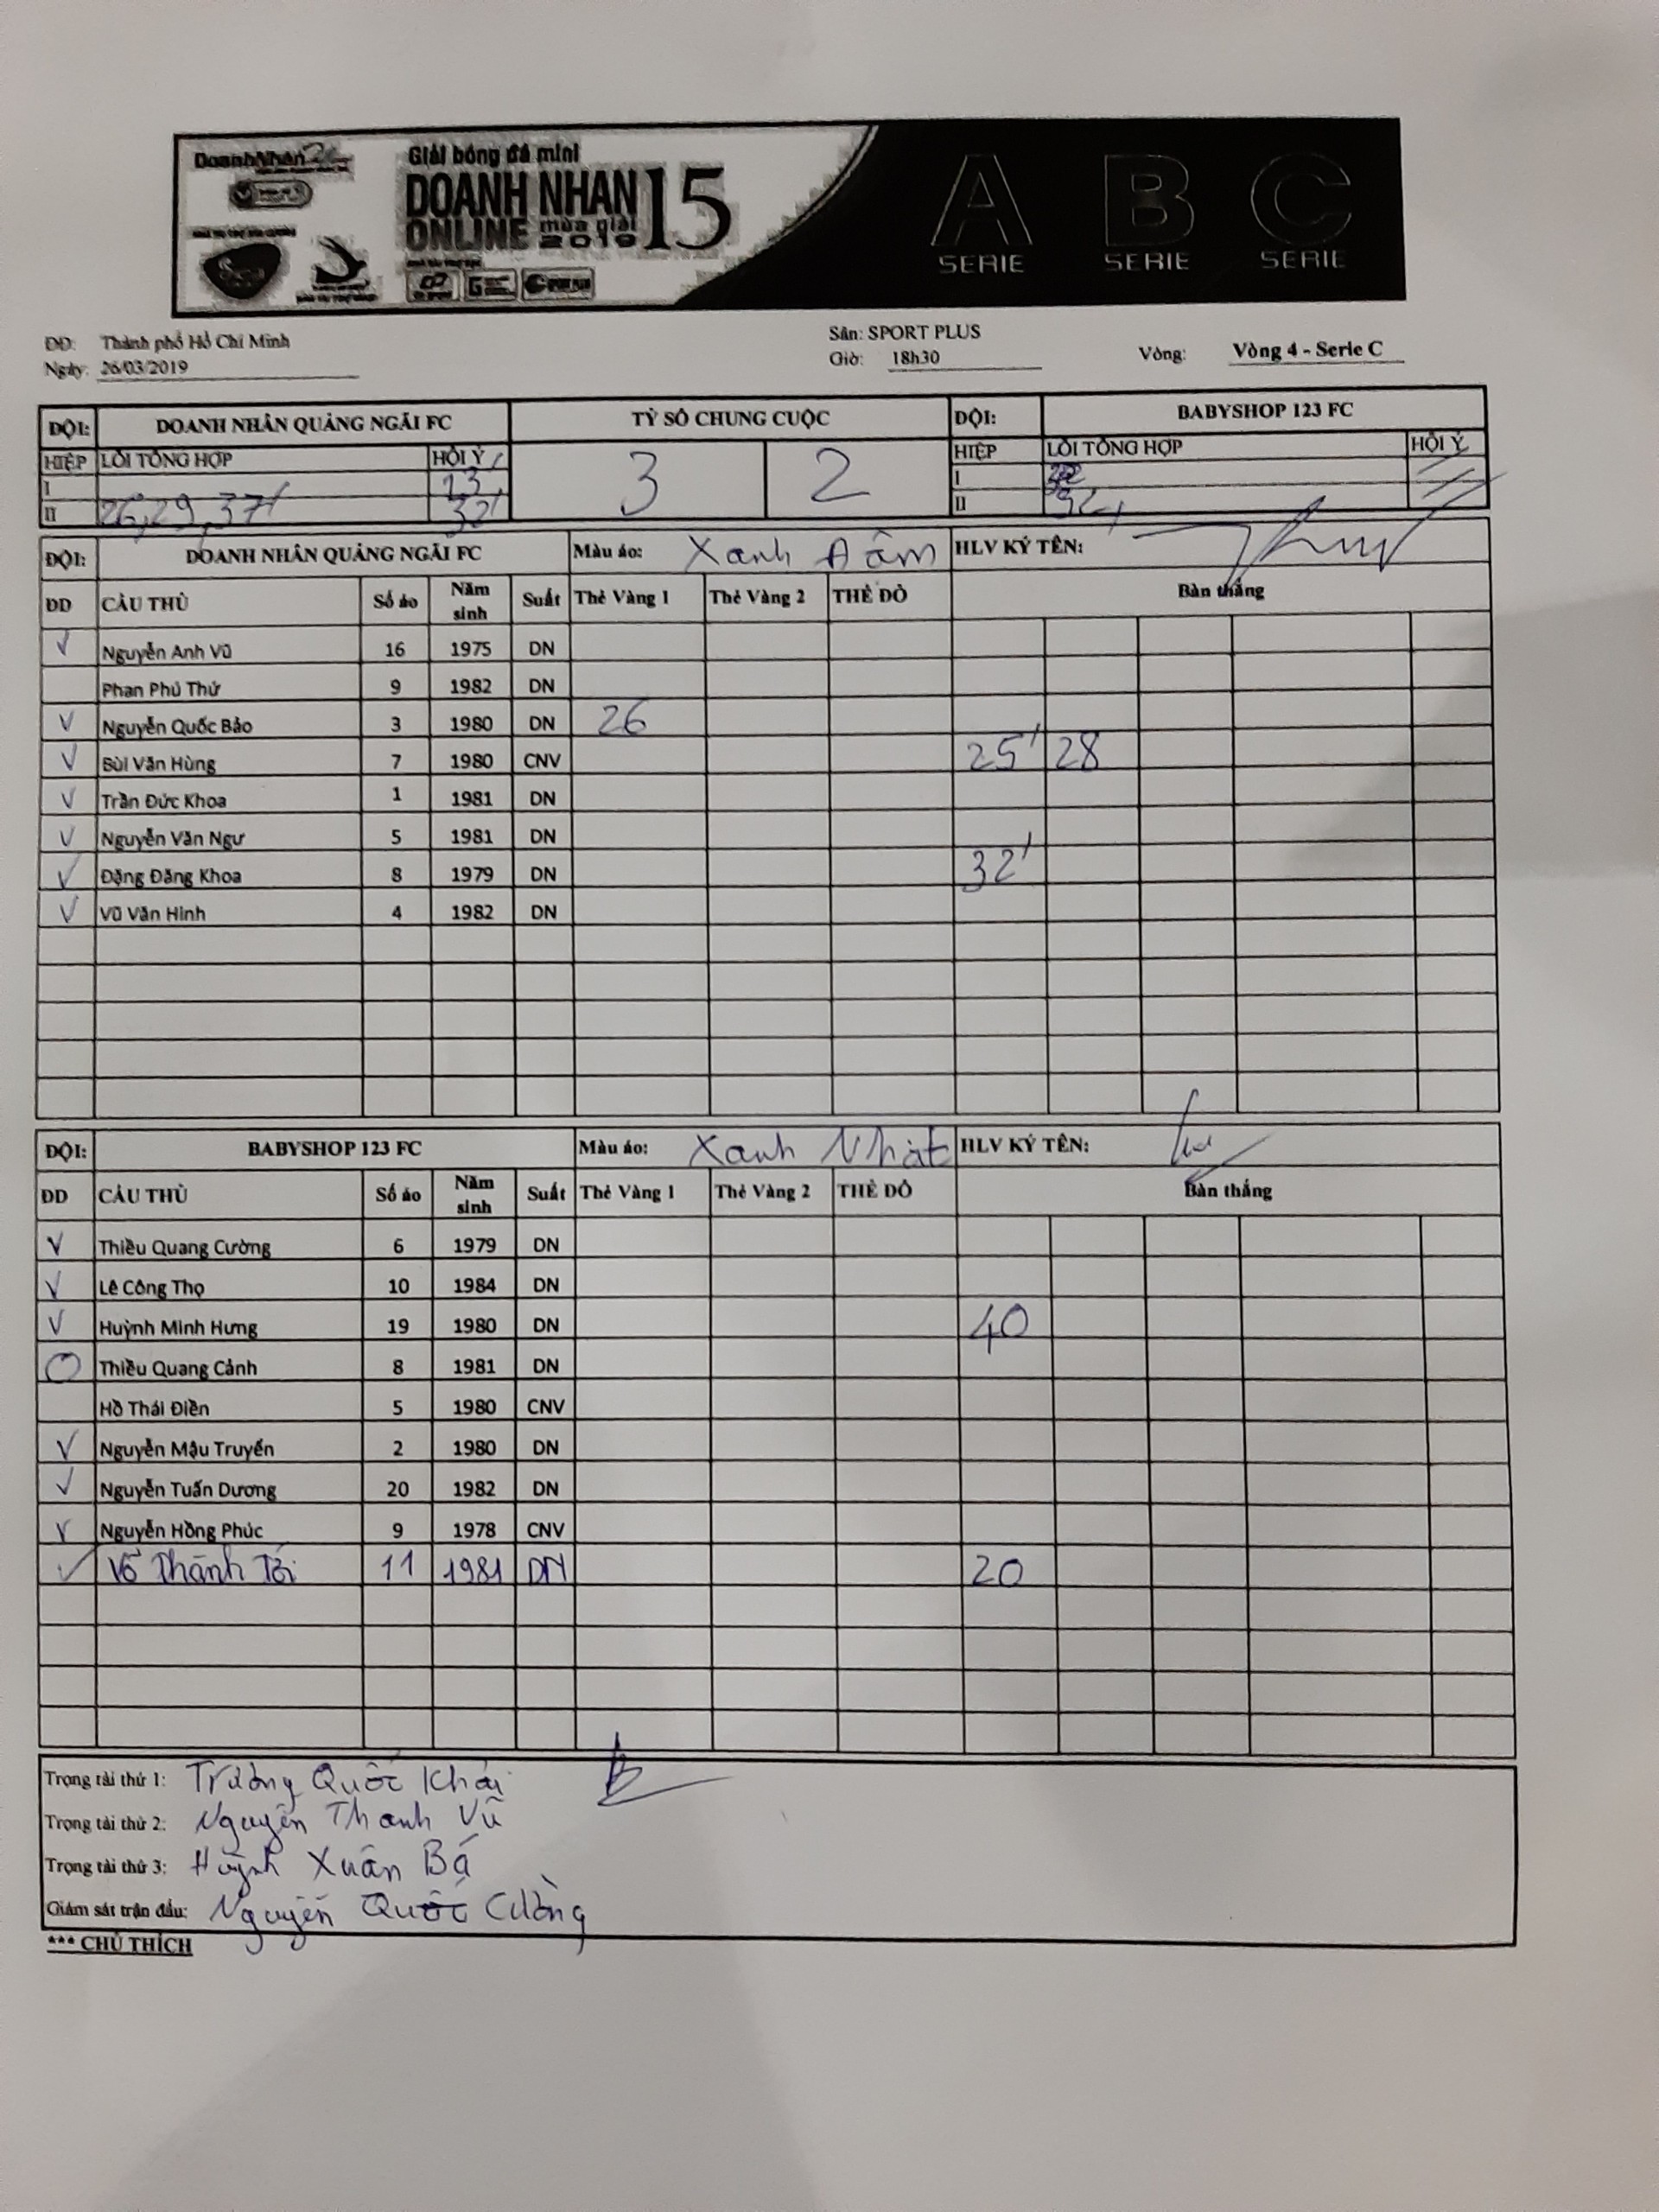 Giải bóng đá mini
DOANH NHAN 15
ONLINE mùa giải 2019
A B C
SERIE SERIE SERIE
ĐĐ: Thành phố Hồ Chí Minh Sân: SPORT PLUS
Ngày: 26/03/2019 Giờ: 18h30 Vòng: Vòng 4 - Serie C
ĐỘI: DOANH NHÂN QUẢNG NGÃI FC TỶ SỐ CHUNG CUỘC ĐỘI: BABYSHOP 123 FC
HIỆP LỖI TỔNG HỢP HỘI Ý 3 2 HIỆP LỖI TỔNG HỢP HỘI Ý
I 13' I
II 26, 29, 37' 32' II 32,
ĐỘI: DOANH NHÂN QUẢNG NGÃI FC Màu áo: Xanh Đậm HLV KÝ TÊN:
ĐD CẦU THỦ Số áo Năm sinh Suất Thẻ Vàng 1 Thẻ Vàng 2 THẺ ĐỎ Bàn thắng
V Nguyễn Anh Vũ 16 1975 DN
Phan Phú Thứ 9 1982 DN
V Nguyễn Quốc Bảo 3 1980 DN 26
V Bùi Văn Hùng 7 1980 CNV 25' 28
V Trần Đức Khoa 1 1981 DN
V Nguyễn Văn Ngư 5 1981 DN
V Đặng Đăng Khoa 8 1979 DN 32'
V Vũ Văn Hinh 4 1982 DN
ĐỘI: BABYSHOP 123 FC Màu áo: Xanh Nhạt HLV KÝ TÊN:
ĐD CẦU THỦ Số áo Năm sinh Suất Thẻ Vàng 1 Thẻ Vàng 2 THẺ ĐỎ Bàn thắng
V Thiều Quang Cường 6 1979 DN
V Lê Công Thọ 10 1984 DN
V Huỳnh Minh Hưng 19 1980 DN 40
O Thiều Quang Cảnh 8 1981 DN
Hồ Thái Điền 5 1980 CNV
V Nguyễn Mậu Truyển 2 1980 DN
V Nguyễn Tuấn Dương 20 1982 DN
V Nguyễn Hồng Phúc 9 1978 CNV
V Võ Thành Tới 11 1981 DN 20
Trọng tài thứ 1: Trương Quốc Khải
Trọng tài thứ 2: Nguyễn Thanh Vũ
Trọng tài thứ 3: Huỳnh Xuân Bá
Giám sát trận đấu: Nguyễn Quốc Cường
*** CHÚ THÍCH